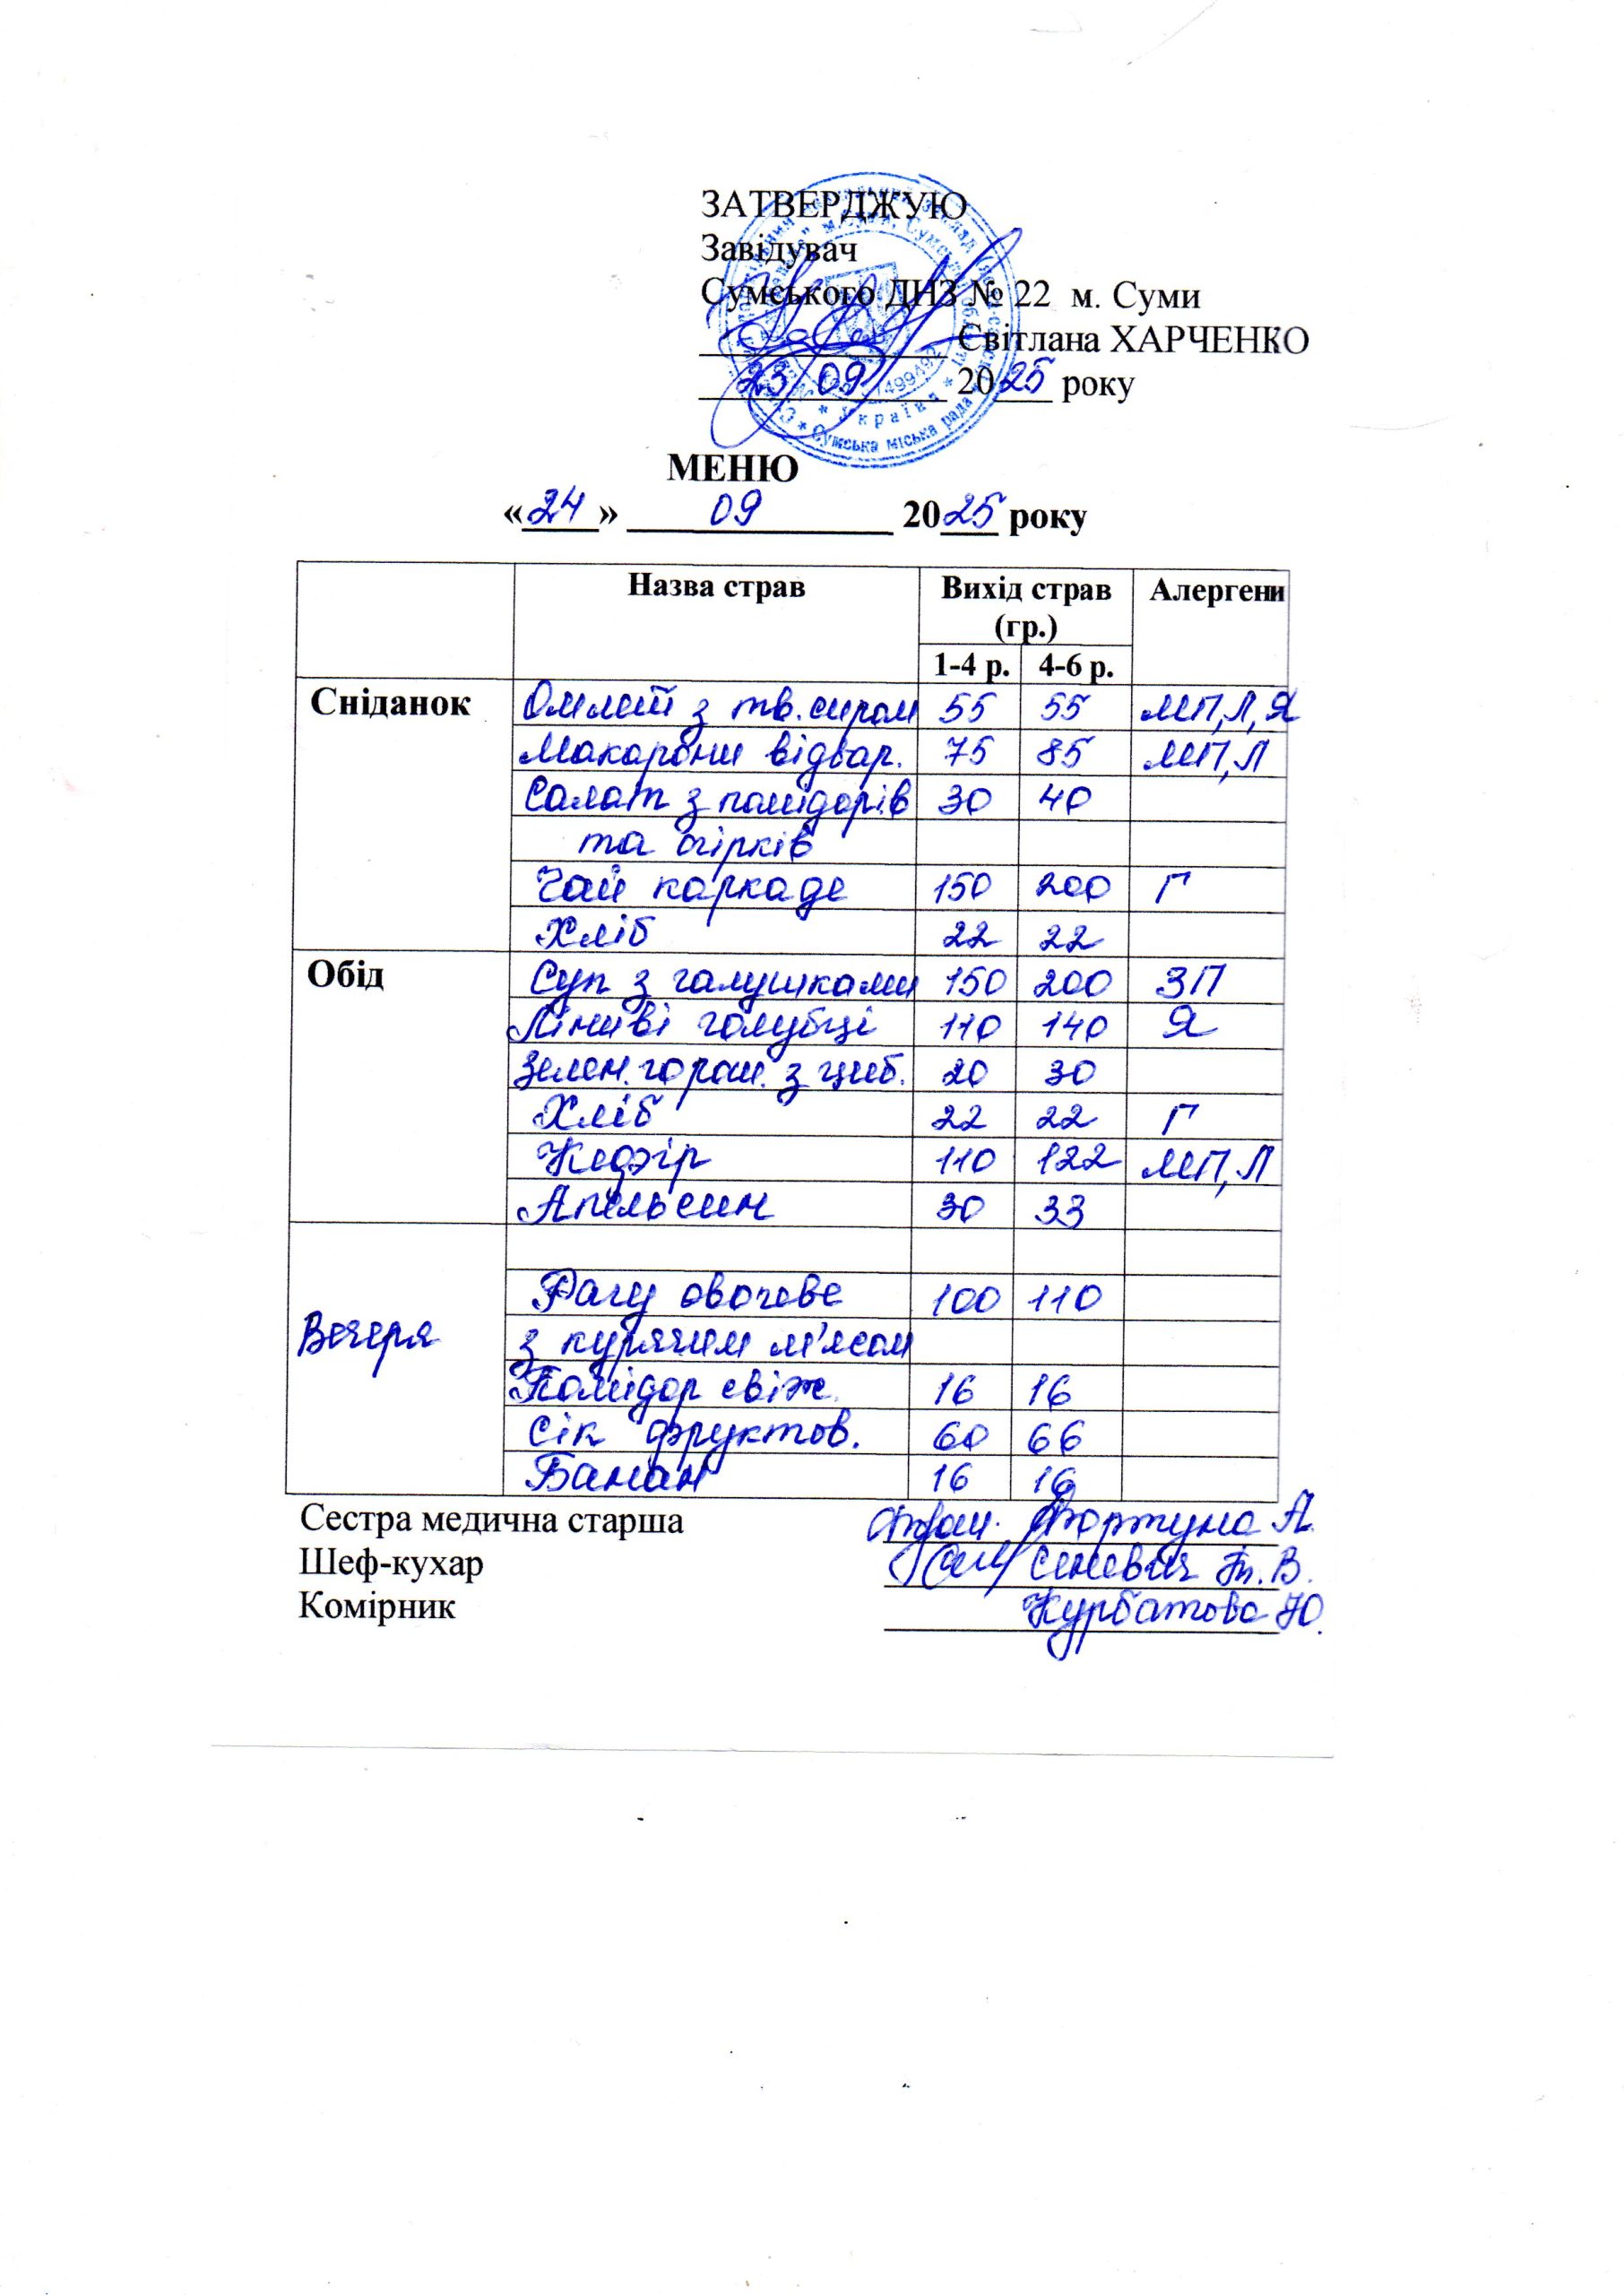 ЗАТВЕРДЖУЮ
Завідувач
Сумського ДНЗ № 22 м. Суми
Світлана ХАРЧЕНКО
23 09 2025 року
Україна
Сумська міська рада
МЕНЮ
«24» 09 2025 року
Назва страв Вихід страв (гр.) Алергени
1-4 р. 4-6 р.
Сніданок Омлет з тв. сиром 55 55 МП, Л, Я
Макарони відвар. 75 85 МП, Л
Салат з помідорів 30 40
та огірків
Чай каркаде 150 200 Г
Хліб 22 22
Обід Суп з галушками 150 200 ЗП
Ліниві голубці 110 140 Я
Зелен. горош. з циб. 20 30
Хліб 22 22 Г
Кефір 110 122 МП, Л
Апельсин 30 33
Рагу овочеве 100 110
Вечеря з курячим м'ясом
Помідор свіж. 16 16
Сік фруктов. 60 66
Банан 16 16
Сестра медична старша Фортуна А.
Шеф-кухар В.
Комірник Курбатова Ю.